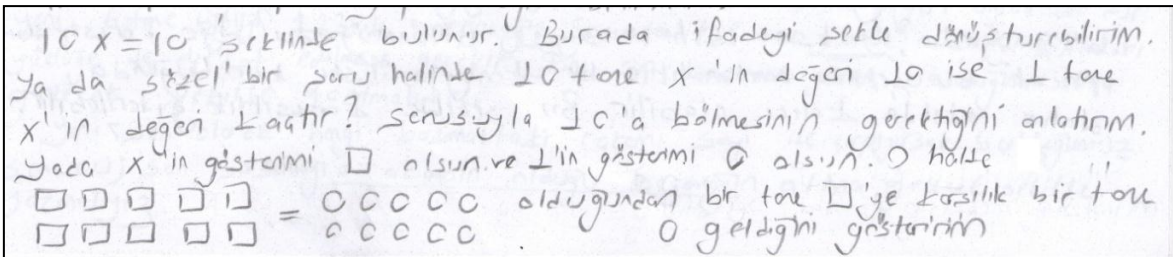 10 x = 10 şeklinde bulunur. Burada ifadeyi şekle dönüştürebilirim.
ya da sözel bir soru halinde 10 tane x'in değeri 10 ise 1 tane
x'in değeri kaçtır? sorusuyla 10'a bölmesinin gerektiğini anlatırım.
yada x in gösterimi □ olsun.ve 1'in gösterimi O olsun O halde
□ □ □ □ □ = O O O O O olduğundan bir tane □ ye karşılık bir tane
□ □ □ □ □ O O O O O O geldiğini gösteririm